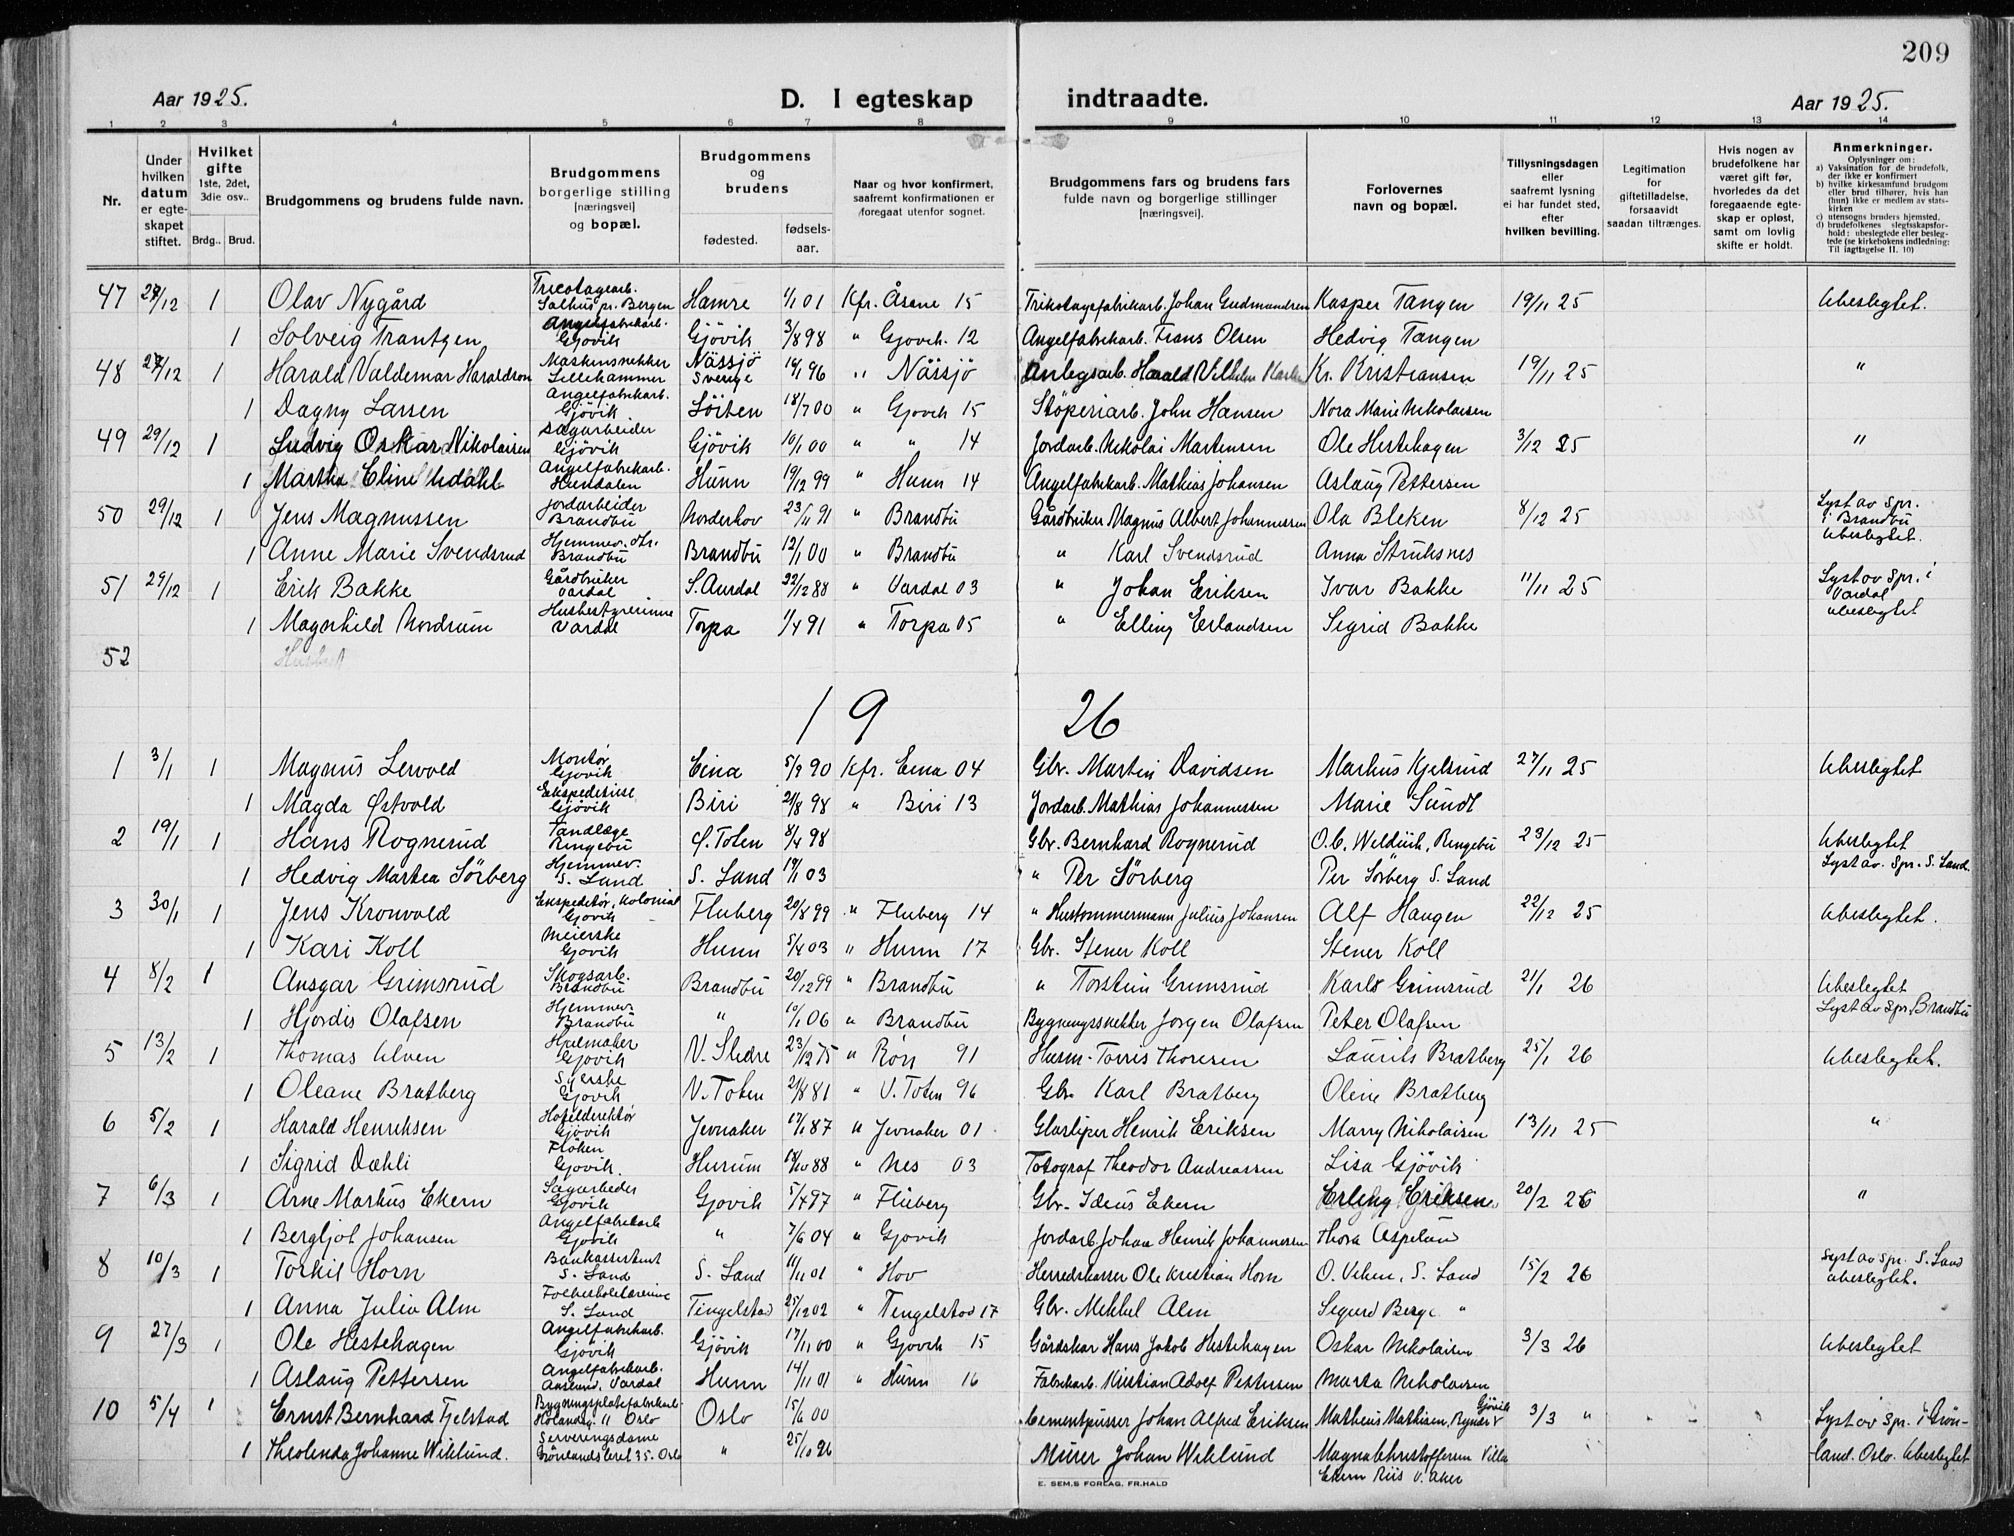 209
Aar 1925. D. I egteskap indtraadte. Aar 1925.
1 2 3 4 5 6 7 8 9 10 11 12 13 14
Nr.
Under hvilken datum er egteskapet stiftet.
Hvilket gifte 1ste, 2det, 3die osv..
Brdg.. Brud.
Brudgommens og brudens fulde navn.
Brudgommens borgerlige stilling [næringsvei] og bopæl.
Brudgommens og brudens
fødested. fødselsaar.
Naar og hvor konfirmert, saafremt konfirmationen er foregaat utenfor sognet.
Brudgommens fars og brudens fars fulde navn og borgerlige stillinger [næringsvei].
Forlovernes navn og bopæl.
Tillysningsdagen eller saafremt lysning ei har fundet sted, efter hvilken bevilling.
Legitimation for giftetilladelse, forsaavidt saadan tiltrænges.
Hvis nogen av brudefolkene har været gift før, hvorledes da det foregaaende egteskap er opløst, samt om lovlig skifte er holdt.
Anmerkninger.
Oplysninger om:
a) Vaksination for de brudefolk, der ikke er konfirmert
b) hvilke kirkesamfund brudgom eller brud tilhører, hvis han (hun) ikke er medlem av statskirken
c) utensogns bruders hjemsted.
d) brudefolkenes slegtsskapsforhold: ubeslegtede eller beslegtede (se kirkebokens indledning: Til iagttagelse II. 10)
47 27/12 1 Olav Nygård Tricotagearb. Salhus pr. Bergen Hamre 1/1 01 Kfr. Åsane 15 Trikotagefabrikarb. Johan Gudmundsen Kasper Tangen 19/11 25 Ubeslegtet.
1 Solveig Frantzen Angelfabrikarb. Gjövik Gjövik 3/8 98 " Gjovik 12 Angelfabrikarb. Frans Olsen Hedvig Tangen
48 27/12 1 Harald Valdemar Haraldson Maskinsnekker Lillehammer Nässjö Sverige 14/1 96 " Nässjö Anlegsarb. Harald Vilhelm Kr. Kristiansen 19/11 25 "
1 Dagny Larsen Angelfabrikarb. Gjövik Löiten 18/7 00 " Gjovik 15 Stöperiarb. John Hansen Nora Marie Nikolaisen
49 29/12 1 Ludvig Oskar Nikolaisen Sagarbeider Gjövik Gjövik 10/1 00 " " 14 Jordarb. Nikolai Martensen Ole Hestehagen 3/12 25 "
1 Martha Eline Udahl Angelfabrikarb. Hundalen Hunn 19/12 99 " Hunn 14 Angelfabrikarb. Mathias Johansen Aslaug Pettersen
50 29/12 1 Jens Magnussen Jordarbeider Brandbu Norderhov 23/11 91 " Brandbu Gårdbruker Magnus Albert Johannessen Ola Bleken 8/12 25 Lyst av Spr. i Brandbu Ubeslegtet.
1 Anne Marie Svendsrud Hjemmev. dtr. Brandbu Brandbu 12/1 00 " Brandbu " Karl Svendsrud Anna Struksnes
51 29/12 1 Erik Bakke Gårdbruker Vardal S. Aurdal 22/12 88 " Vardal 03 " Johan Eriksen Ivar Bakke 11/11 25 Lyst av Spr. i Vardal Ubeslegtet
1 Magnhild Nordrum Husbestyrerinne Vardal Torpa 1/4 91 " Torpa 05 " Elling Erlandsen Sigrid Bakke
52
19 26
1 3/1 1 Magnus Lervold Montør Gjovik Eina 5/9 90 Kfr. Eina 04 Gbr. Martin Davidsen Markus Kjelsrud 27/11 25 Ubeslegtet
1 Magda Østvold Ekspeditrise Gjövik Biri 21/8 98 " Biri 13 Jordarb. Mathias Johannessen Marie Sundt
2 19/1 1 Hans Rognerud Tandlæge Ringebu Ø. Toten 8/4 98 Gbr. Bernhard Rognerud Ringebu 23/12 25 Ubeslegtet
1 Hedvig Martea Sörberg Hjemmev. S. Land S. Land 19/1 03 " Per Sörberg Per Sörberg S. Land Lyst av. Spr. S. Land.
3 30/1 1 Jens Kronvold Ekspeditör, Kolonial Gjovik Fluberg 20/8 99 " Fluberg 14 " Hustommermann Julius Johansen Alf Haugen 22/12 25 Ubeslegtet.
1 Kari Koll Meierske Gjovik Hunn 5/4 03 " Hunn 17 Gbr. Stener Koll Stener Koll
4 8/2 1 Ansgar Grimsrud Skogsarb. Brandbu Brandbu 20/12 99 " Brandbu " Torstein Grimsrud Karls Grimsrud 21/1 26 Ubeslegtet
1 Hjordis Olafsen Hjemmev. Brandbu " 10/1 06 " Brandbu Bygningssnekker Jorgen Olafsen Peter Olafsen Lyst av Spr. Brandbu
5 13/2 1 Thomas Ulven Hjulmaker Gjovik V. Slidre 23/12 75 " Røn 91 Husm. Torris Thoresen Laurits Bratberg 25/1 26 Ubeslegtet.
1 Oleane Bratberg Syerske Gjovik V. Toten 21/8 81 " V. Toten 96 Gbr. Karl Bratberg Oline Bratberg
6 5/2 1 Harald Henriksen Hotelldirektør Gjövik Jevnaker 17/1 87 " Jevnaker 01 Glasliper Henrik Eriksen Marry Nikolaisen 13/11 25 "
1 Sigrid Dæhli Frøken Gjovik. Hurum 18/10 88 " Nes 03 Fotograf Theodor Andreassen Lisa Gjövik
7 6/3 1 Arne Markus Ekern Sagarbeder Gjovik Gjovik 5/4 97 " Fluberg Gbr. Ideus Ekern Erling Eriksen 20/2 26 "
1 Bergljot Johansen Angelfabrikarb Gjovik " 7/6 04 " Gjovik Jordarb. Johan Henrik Johannessen Thora Aspelun
8 10/3 1 Torkil Horn Bankassistent S. Land S. Land 11/11 01 " Hov Herredskasser Ole Kristian Horn O. Viken, S. Land 15/2 26 Lyst av Spr. S. Land Ubeslegtet.
1 Anna Julia Alm Folkeskolelærerinne S. Land Tingelstad 25/12 02 " Tingelstad 17 Gbr. Mikkel Alm Sigurd Berge "
9 27/3 1 Ole Hestehagen Angelfabrikarb. Gjövik Gjövik 17/11 00 " Gjovik 15 Gårdskar Hans Jakob Hestehagen Oskar Nikolaisen 3/3 26 Ubeslegtet
1 Aslaug Pettersen Angelfabrikarb. Vardal Hunn 14/11 01 " Hunn 16 Fabrikarb. Kristian Adolf Pettersen Marta Nikolaisen
10 5/4 1 Ernst Bernhard Fjelstad Bygningsplatefabrikarb. 11 Oslo Oslo 15/6 00 Cementpusser Johan Alfred Eriksen Matheus Mathisen, Gjövik 3/3 " Lyst av Spr. i Grön-
1 Theolenda Johanne Wiklund. Serveringsdame Grönlandsleret 35. Oslo " 25/10 26 Murer Johan Wiklund Magna Christoffersen Villa Ekern Riis V. Aker land. Oslo. Ubeslegtet
E. SEM.S FORLAG, FR.HALD